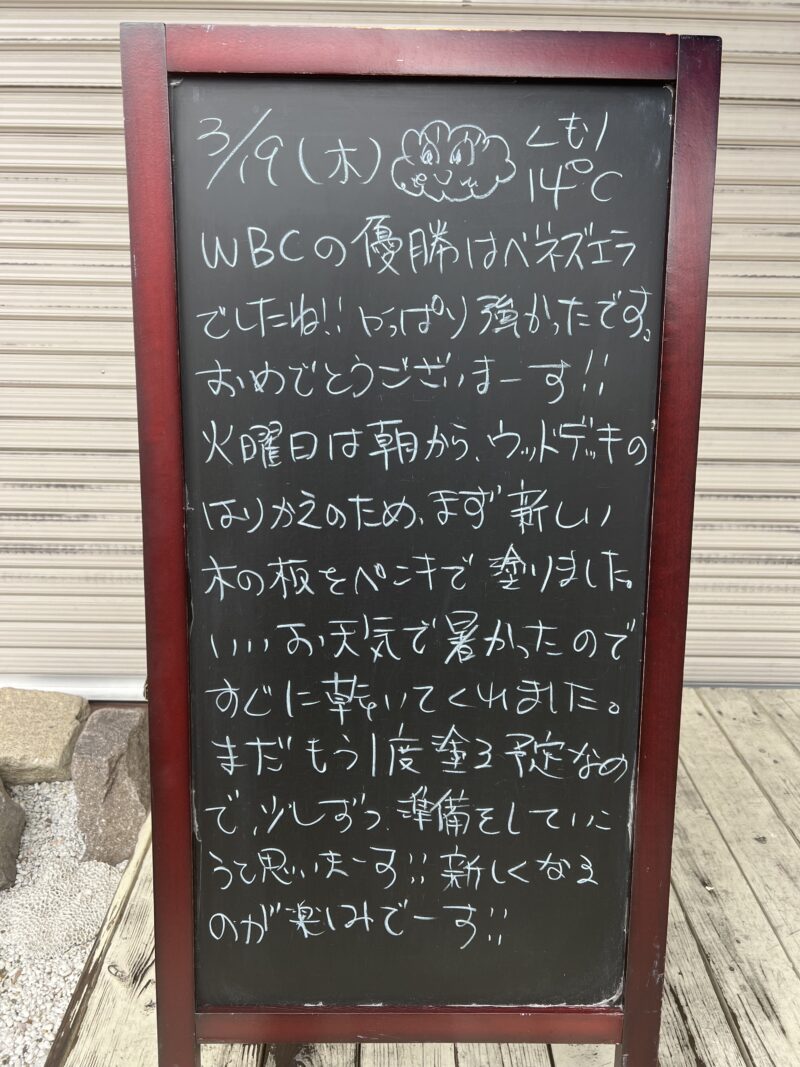 3/19(木) くもり 14℃
WBCの優勝はベネズエラ
でしたね!! やっぱり強かったです。
おめでとうございまーす!!
火曜日は朝から、ウッドデッキの
はりかえのため、まず新しい
木の板をペンキで塗りました。
いいお天気で暑かったので
すぐに乾いてくれました。
まだもう1度塗る予定なの
で、少しずつ準備をしていこ
うと思いまーす!! 新しくなる
のが楽しみでーす!!